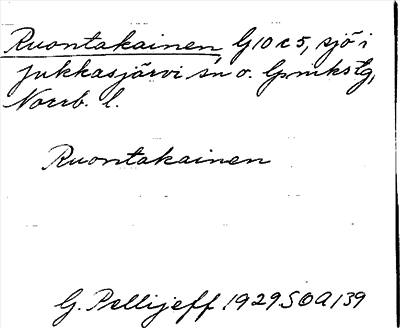 Ruontakainen, G10c5, sjö i
Jukkasjärvi sn o. lpmkstg,
Norrb. l.
Ruontakainen
G. Pellijeff 1929 SOA 139